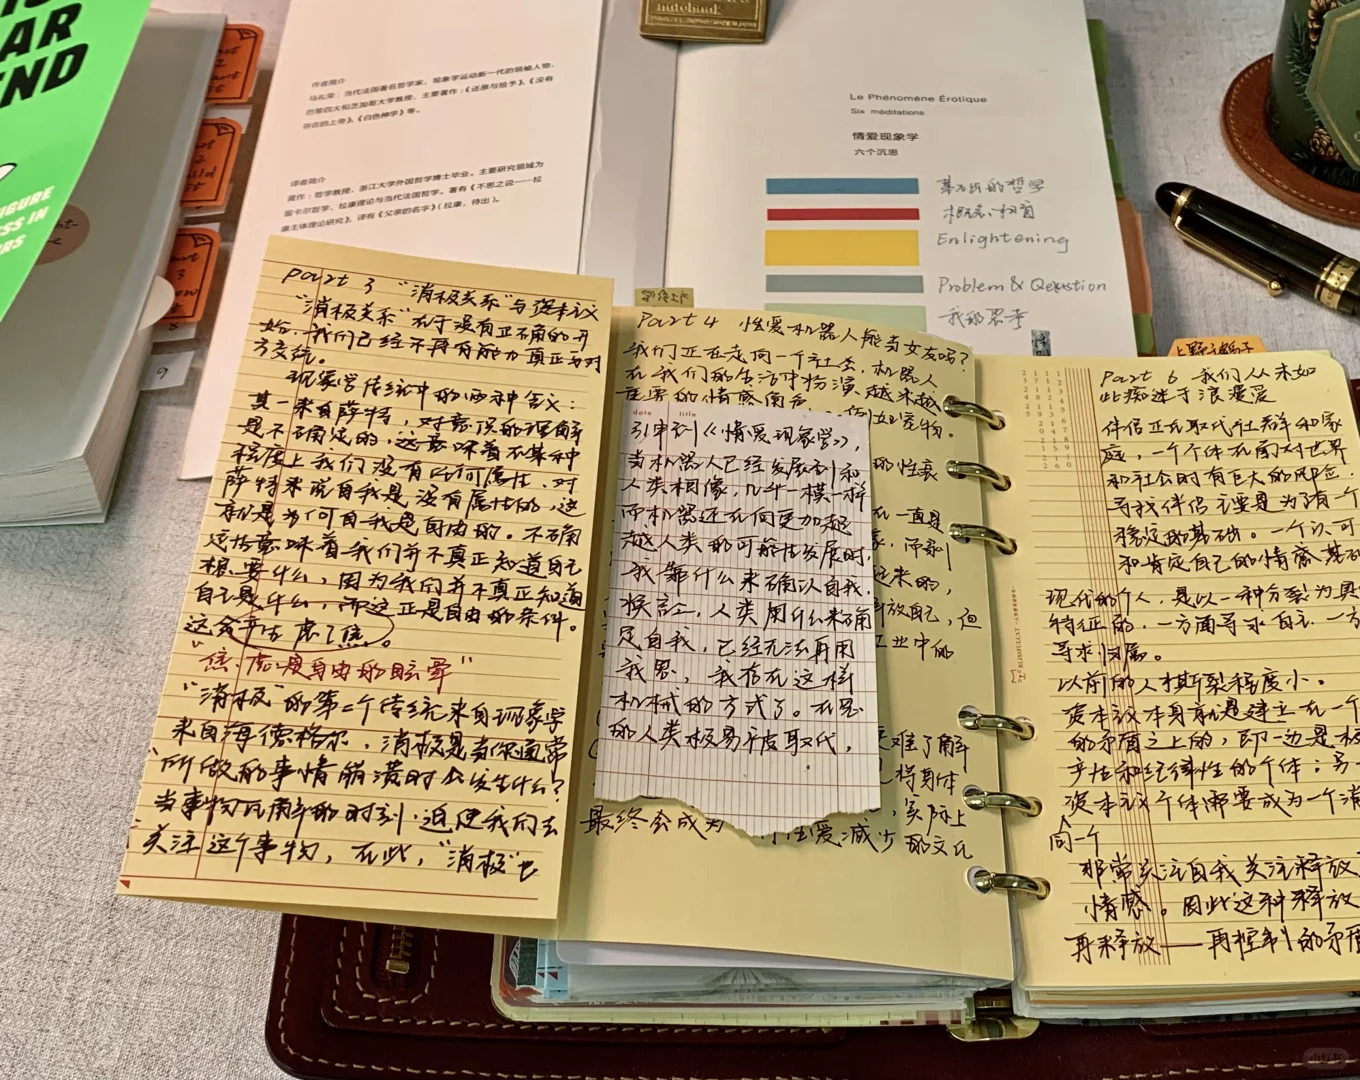 AR
END
IGURE
SS IN
RS
notebook
作者简介
马礼荣：当代法国著名哲学家，现象学运动新一代的领袖人物，
巴黎四大和芝加哥大学教授，主要著作：《还原与给予》、《没有
存在的上帝》、《白色神学》等。
译者简介
黄作：哲学教授，浙江大学外国哲学博士毕业。主要研究领域为
笛卡尔哲学、拉康理论与当代法国哲学。著有《不思之说——拉
康主体理论研究》，译有《父亲的名字》（拉康，待出）。
Le Phénomène Érotique
Six méditations
情爱现象学
六个沉思
的哲学
概念
Enlightening
Problem & Qexustion
我的思考
9
Part 3 “消极关系”与资本主义
“消极关系”在于没有正确的开
始，我们已经不再有能力真正与对
方交流。
现象学传统中的两种含义：
其一来自萨特，对意识的理解
是不确定的，这意味着在某种
程度上我们没有任何属性。对
萨特来说自我是没有属性的，这
就是为何自我是自由的。不确
定性意味着我们并不真正知道自己
想要什么，因为我们并不真正知道
自己是什么，而这正是自由的条件。
这会产生焦虑。
“焦虑是自由的眩晕”
“消极”的第二个传统来自现象学
来自海德格尔，消极是当你通常
所做的事情崩溃时会发生什么？
当事物瓦解的时刻，迫使我们去
关注这个事物，在此，“消极”也
Part 4 性爱机器人能当女友吗？
我们正在走向一个社会，机器人
在我们的生活中扮演越来越
重要的情感角色
宠物。
date title
引申到《情爱现象学》，
当机器人已经发展到和
人类相像，几乎一模一样
而机器还在向更加超
越人类的可能性发展时，
我靠什么来确认自我，
换言之，人类用什么来确
定自我，已经无法再用
我思，我存在这样
机械的方式了。在思
的人类极易于被取代，
的性衰
在一直是
来的，
放自己，但
工业中的
难了解
得身体
实际上
最终会成为 性爱减少的文化
Part 6 我们从未如
此痴迷于浪漫爱
伴侣正在取代社群和家
庭，一个个体在面对世界
和社会时有巨大的风险，
寻找伴侣主要是为了有一个
稳定的基础。一个认可
和肯定自己的情感基础
现代的个人，是以一种分裂为其
特征的，一方面寻求自主，一方
寻求归属。
以前的人撕裂程度小。
资本主义本身就是建立在一个
的矛盾之上的，即一边是极
产性和纪律性的个体；另一
资本主义个体需要成为一个消
同一个
非常关注自我关注释放
情感。因此这种释放
再释放——再控制的矛盾
小红书